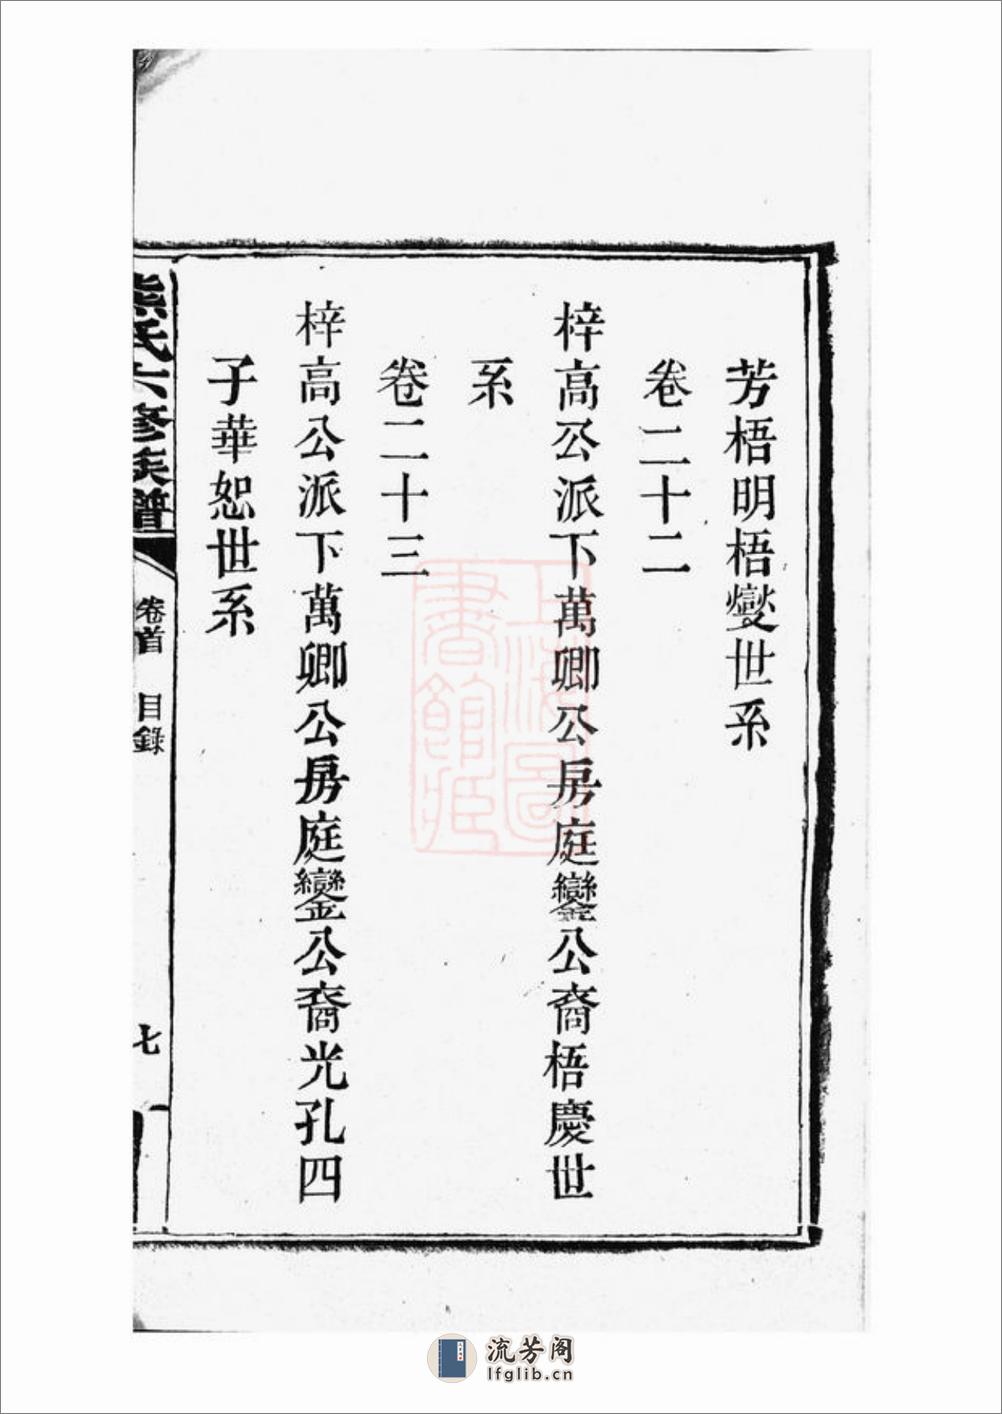 芳梧明梧燮世系
卷二十二
梓高公派下萬卿公房庭鑾公裔梧慶世
系
卷二十三
梓高公派下萬卿公房庭鑾公裔光孔四
子華恕世系
熊氏六修族譜
卷首 目錄
七
上海圖書館藏
流芳阁
lfglib.cn